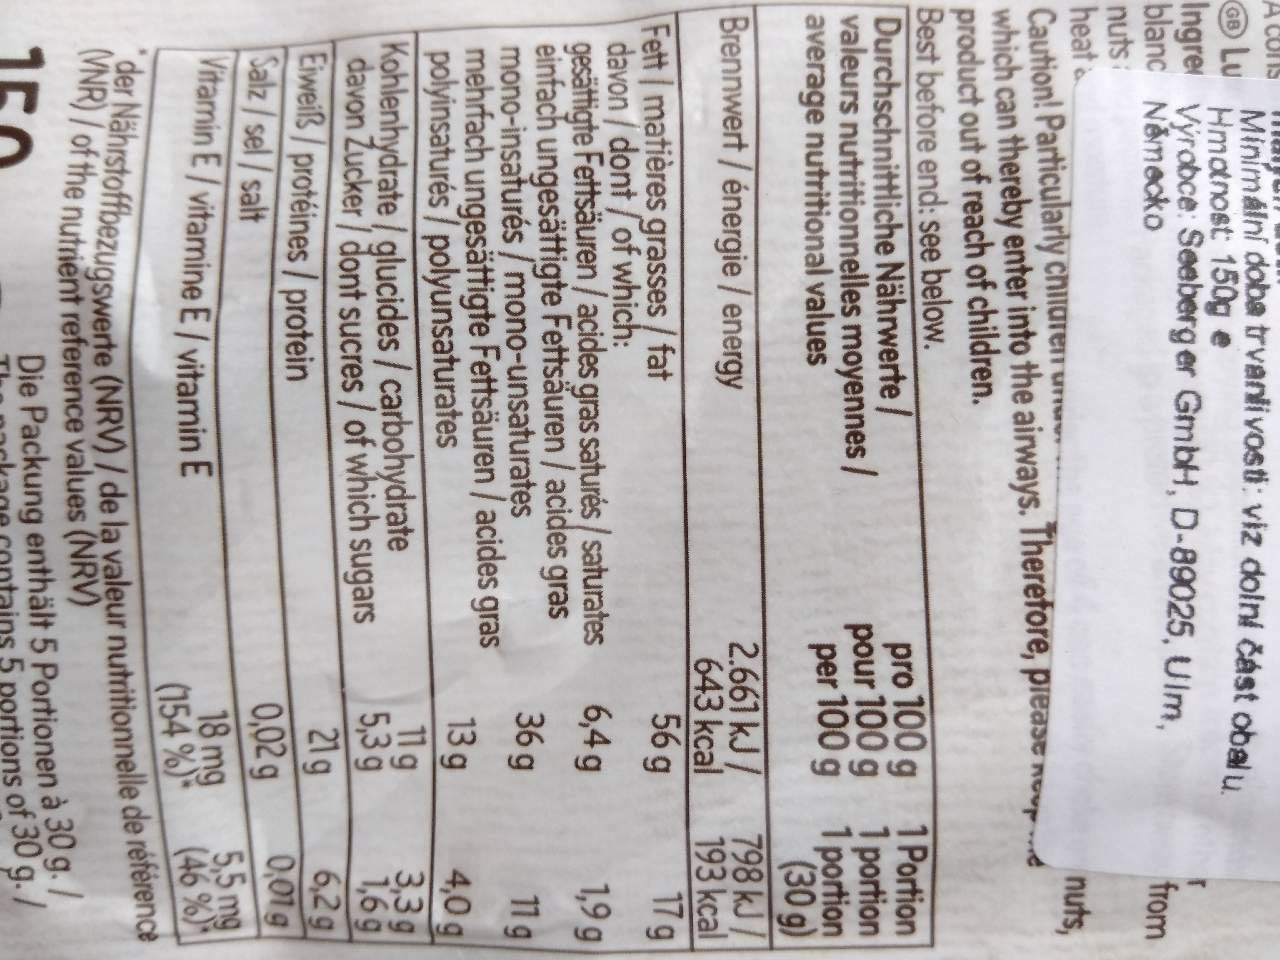 Minimální doba trvanlivosti: viz dolní část obalu.
Hmotnost: 150g e
Výrobce: Seeberger GmbH, D-89025, Ulm,
Německo
GB Lu
Ingre
blanc from
nuts nuts,
heat
Caution! Particularly children
which can thereby enter into the airways. Therefore, please
product out of reach of children.
Best before end: see below.
Durchschnittliche Nährwerte / pro 100 g 1 Portion
valeurs nutritionnelles moyennes / pour 100 g 1 portion
average nutritional values per 100 g 1 portion
(30 g)
Brennwert / énergie / energy 2.661 kJ / 798 kJ /
643 kcal 193 kcal
Fett / matières grasses / fat 56 g 17 g
davon / dont / of which:
gesättigte Fettsäuren / acides gras saturés / saturates 6,4 g 1,9 g
einfach ungesättigte Fettsäuren / acides gras
mono-insaturés / mono-unsaturates 36 g 11 g
mehrfach ungesättigte Fettsäuren / acides gras
polyinsaturés / polyunsaturates 13 g 4,0 g
Kohlenhydrate / glucides / carbohydrate 11 g 3,3 g
davon Zucker / dont sucres / of which sugars 5,3 g 1,6 g
Eiweiß / protéines / protein 21 g 6,2 g
Salz / sel / salt 0,02 g 0,01 g
Vitamin E / vitamine E / vitamin E 18 mg 5,5 mg
(154 %)* (46 %)*
*der Nährstoffbezugswerte (NRV) / de la valeur nutritionnelle de référence
(VNR) / of the nutrient reference values (NRV)
Die Packung enthält 5 Portionen à 30 g. /
The package contains 5 portions of 30 g. /
150